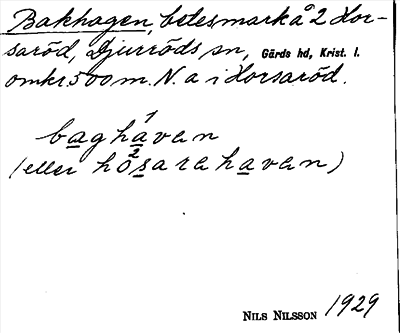 Bakhagen, betesmark å 2 Hor-
saröd, Djurröds sn, Gärds hd, Krist. l.
omkr. 500 m. N. a i Horsaröd.
baghávan
(eller hö²sarahavan)
NILS NILSSON 1929